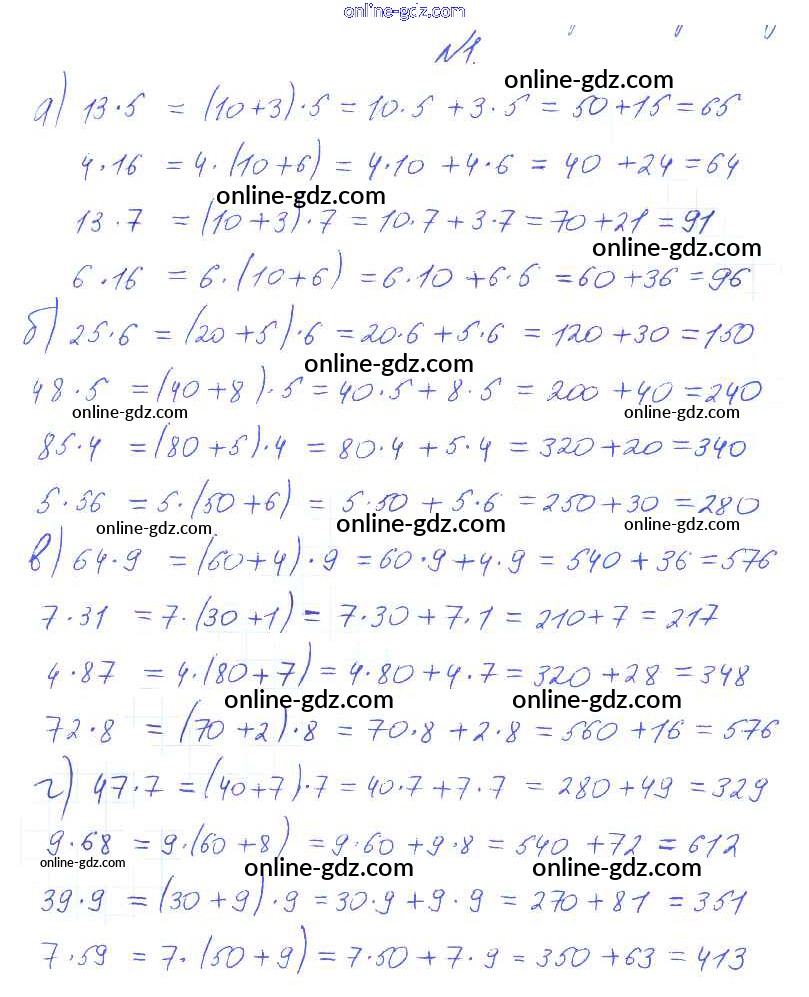 online-gdz.com
№1.
online-gdz.com
а) 13·5 = (10+3)·5 = 10·5 + 3·5 = 50+15 = 65
4·16 = 4·(10+6) = 4·10 + 4·6 = 40 + 24 = 64
online-gdz.com
13·7 = (10+3)·7 = 10·7 + 3·7 = 70 + 21 = 91
online-gdz.com
6·16 = 6·(10+6) = 6·10 + 6·6 = 60 + 36 = 96
б) 25·6 = (20+5)·6 = 20·6 + 5·6 = 120 + 30 = 150
online-gdz.com
48·5 = (40+8)·5 = 40·5 + 8·5 = 200 + 40 = 240
online-gdz.com online-gdz.com
85·4 = (80+5)·4 = 80·4 + 5·4 = 320 + 20 = 340
5·56 = 5·(50+6) = 5·50 + 5·6 = 250 + 30 = 280
online-gdz.com online-gdz.com online-gdz.com
в) 64·9 = (60+4)·9 = 60·9 + 4·9 = 540 + 36 = 576
7·31 = 7·(30+1) = 7·30 + 7·1 = 210 + 7 = 217
4·87 = 4·(80+7) = 4·80 + 4·7 = 320 + 28 = 348
online-gdz.com online-gdz.com
72·8 = (70+2)·8 = 70·8 + 2·8 = 560 + 16 = 576
г) 47·7 = (40+7)·7 = 40·7 + 7·7 = 280 + 49 = 329
9·68 = 9·(60+8) = 9·60 + 9·8 = 540 + 72 = 612
online-gdz.com online-gdz.com online-gdz.com
39·9 = (30+9)·9 = 30·9 + 9·9 = 270 + 81 = 351
7·59 = 7·(50+9) = 7·50 + 7·9 = 350 + 63 = 413